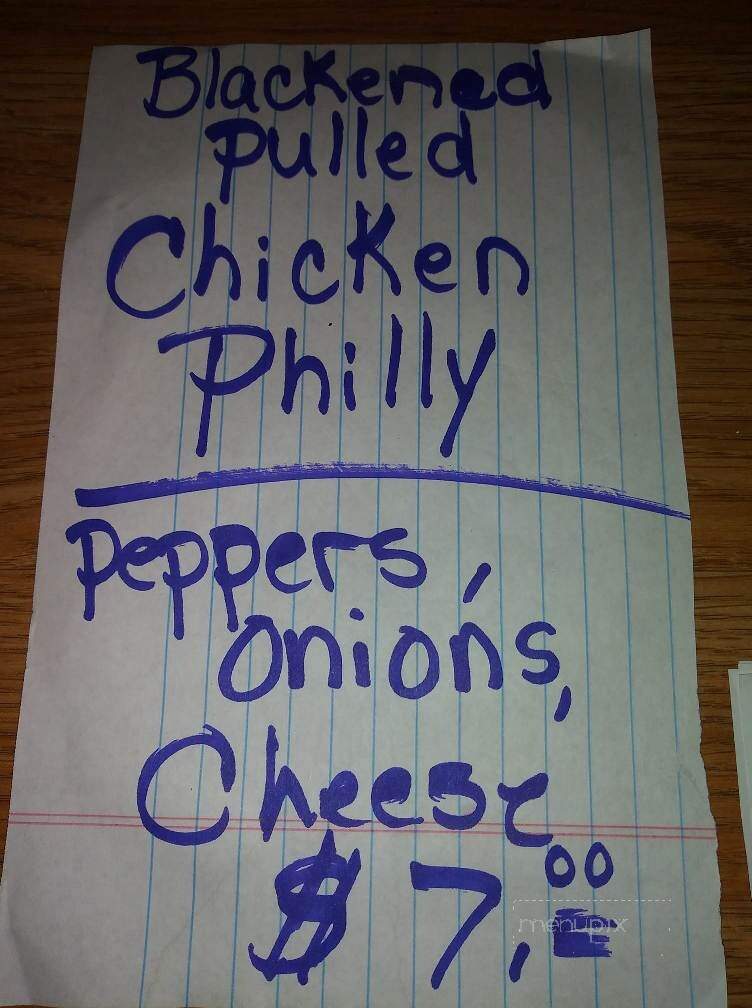 Blackened
Pulled
Chicken
Philly
Peppers,
Onions,
Cheese
$7.00
menupix